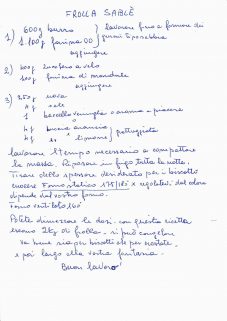 FROLLA SABLÈ
1) 600g burro
1,100g farina 00
lavorare fino a formare dei
grumi
aggiungere
2) 400g zucchero a velo
100g farina di mandorle
aggiungere
3) 250g uova
4g sale
1 bacello vaniglia o aroma a piacere
4g buccia arancia
4g " limone grattuggiata
lavorare il tempo necessario a compattare
la massa. Riposare in frigo tutta la notte.
Tirare dello spessore desiderato per i biscotti
cuocere Forno statico 175/185° e regolatevi dal colore
dipende dal vostro forno.
Forno ventilato 160°
Potete dimezzare le dosi. con questa ricetta
escono 2kg di frolla. si può congelare
va bene sia per biscotti che per crostate,
e poi largo alla vostra fantasia.
Buon lavoro